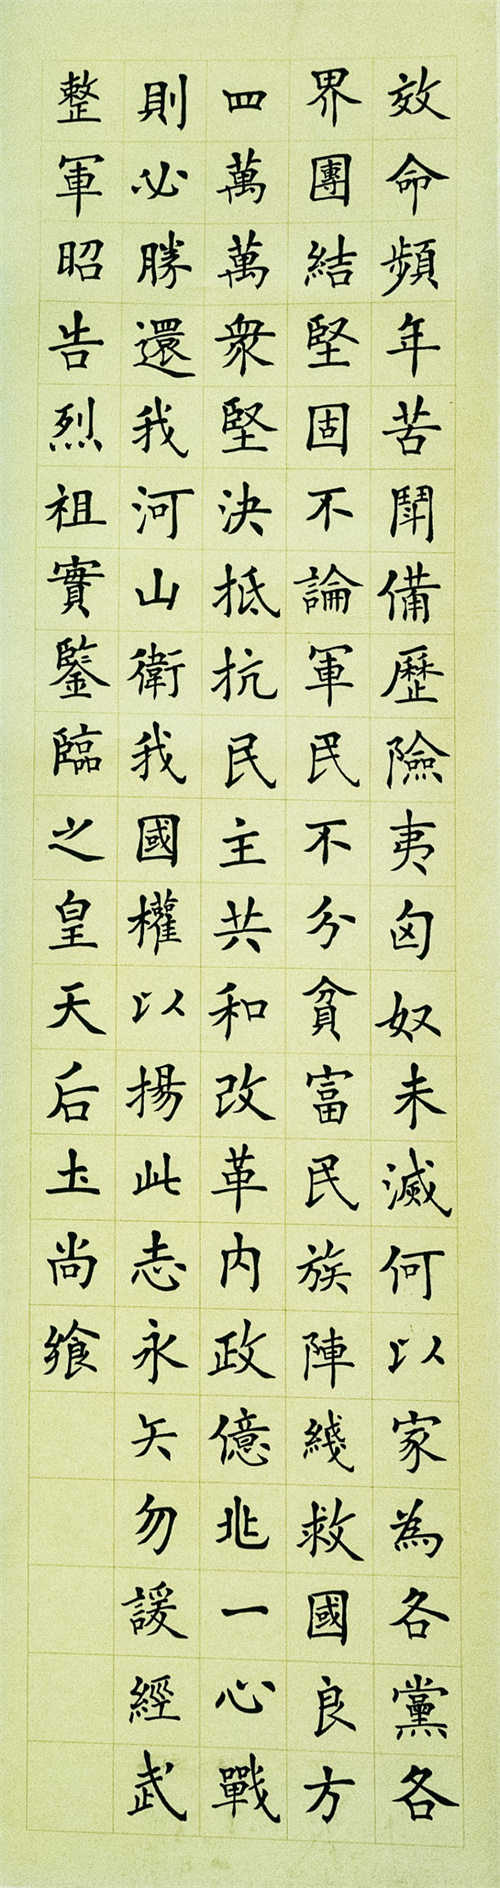 效命頻年苦鬪備歷險夷匈奴未滅何以家為各黨各
界團結堅固不論軍民不分貧富民族陣綫救國良方
四萬萬衆堅決抵抗民主共和改革内政億兆一心戰
則必勝還我河山衛我國權以揚此志永矢勿諼經武
整軍昭告烈祖實鑒臨之皇天后土尚飨